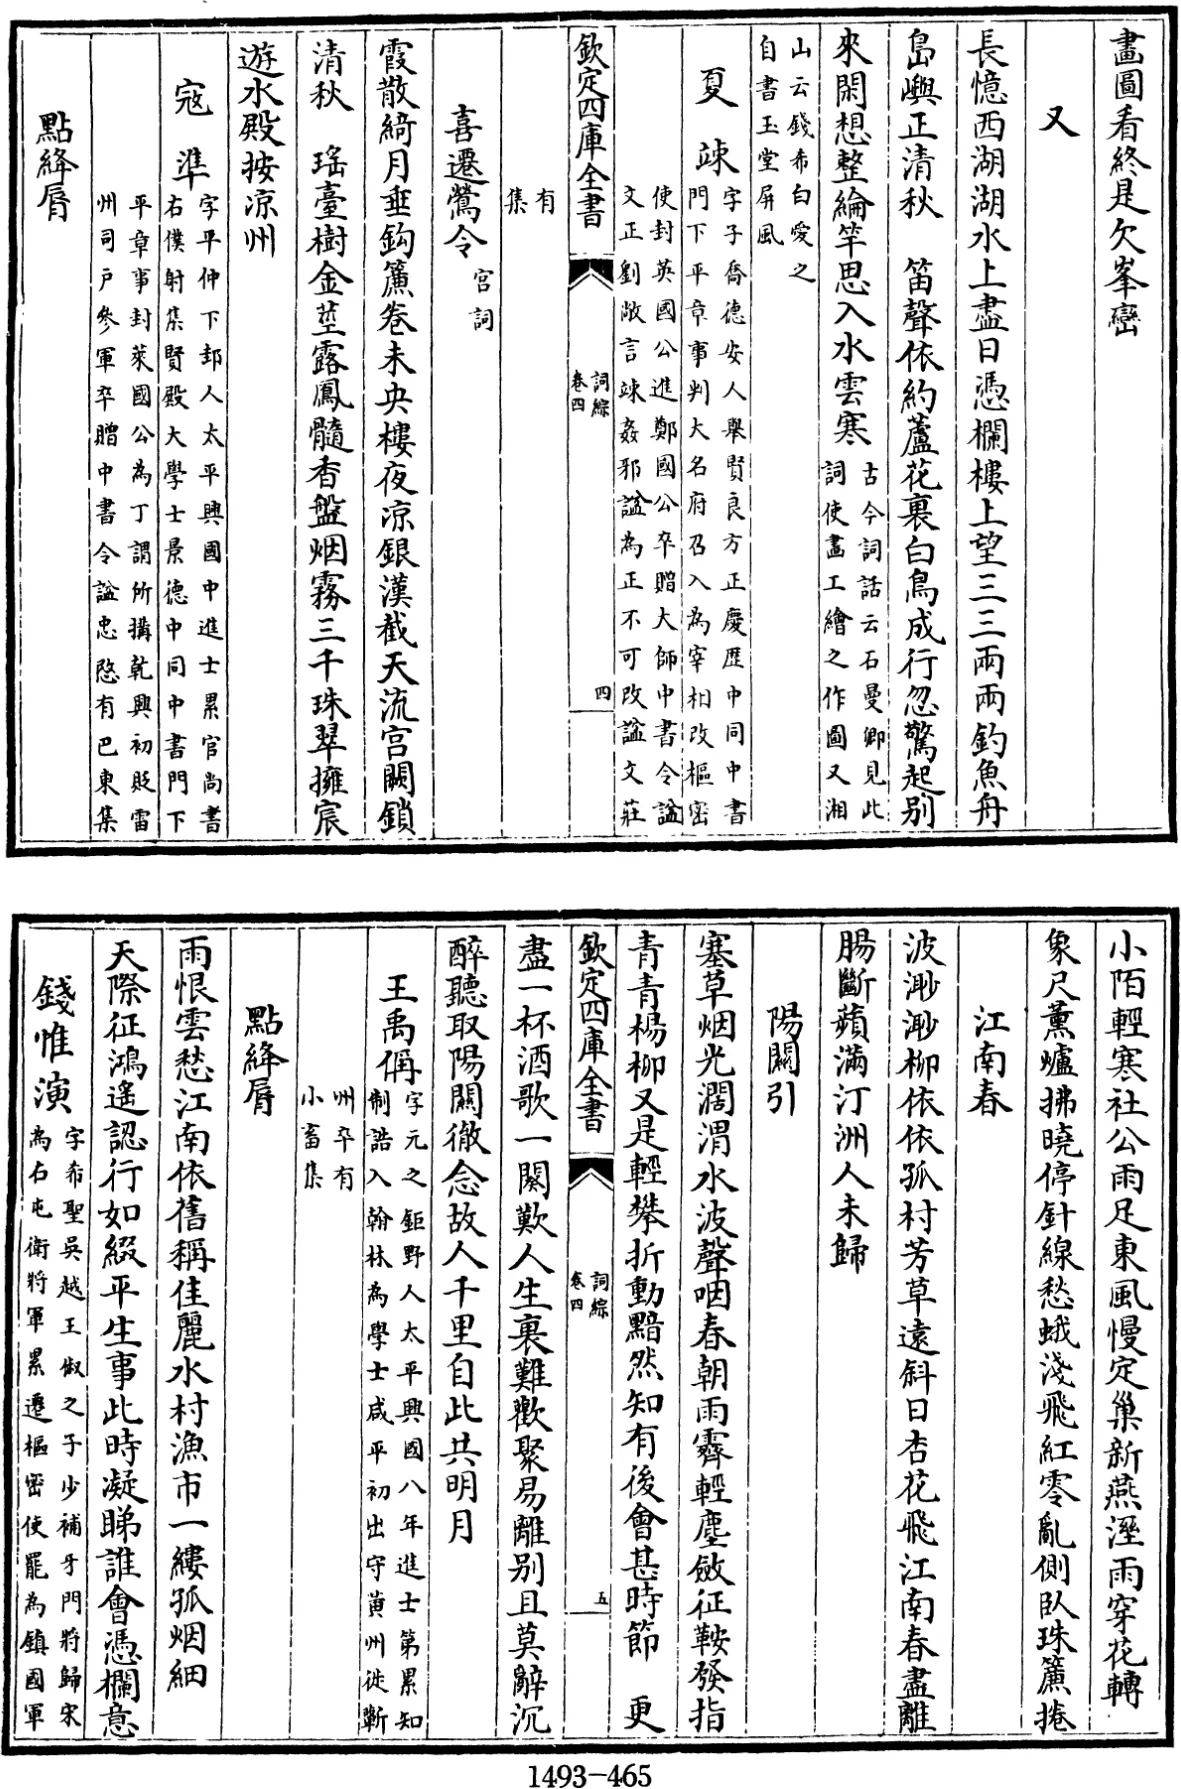 畫圖看終是欠峯巒
又
長憶西湖湖水上盡日憑欄樓上望三三兩兩釣魚舟
島嶼正清秋　笛聲依約蘆花裏白鳥成行忽驚起别
來閑想整綸竿思入水雲寒
古今詞話云石曼卿見此
詞使畫工繪之作圖又湘
山云錢希白愛之
自書玉堂屏風
夏　竦
字子喬德安人舉賢良方正慶歴中同中書
門下平章事判大名府召入為宰相改樞密
使封英國公進鄭國公卒贈大師中書令諡
文正劉敞言竦姦邪諡為正不可改諡文莊
欽定四庫全書
詞綜
卷四
四
有
集
喜遷鶯令
宮詞
霞散綺月垂鈎簾卷未央樓夜凉銀漢截天流宮闕鎖
清秋　瑤臺樹金莖露鳳髓香盤烟霧三千珠翠擁宸
遊水殿按凉州
寇　準
字平仲下邽人太平興國中進士累官尚書
右僕射集賢殿大學士景德中同中書門下
平章事封萊國公為丁謂所搆乾興初貶雷
州司戶參軍卒贈中書令諡忠愍有巴東集
點絳脣
小陌輕寒社公雨足東風慢定巢新燕溼雨穿花轉
象尺薰爐拂曉停針線愁蛾淺飛紅零亂側臥珠簾捲
江南春
波渺渺柳依依孤村芳草遠斜日杏花飛江南春盡離
腸斷蘋滿汀洲人未歸
陽關引
塞草烟光濶渭水波聲咽春朝雨霽輕塵斂征鞍發指
青青楊柳又是輕攀折動黯然知有後會甚時節　更
欽定四庫全書
詞綜
卷四
五
盡一杯酒歌一闋歎人生裏難歡聚易離别且莫辭沉
醉聽取陽關徹念故人千里自此共明月
王禹偁
字元之鉅野人太平興國八年進士第累知
制誥入翰林為學士咸平初出守黄州徙蘄
州卒有
小畜集
點絳脣
雨恨雲愁江南依舊稱佳麗水村漁市一縷孤烟細
天際征鴻遥認行如綴平生事此時凝睇誰會憑欄意
錢惟演
字希聖吳越王俶之子少補牙門將歸宋
為右屯衛將軍累遷樞密使罷為鎮國軍
1493-465